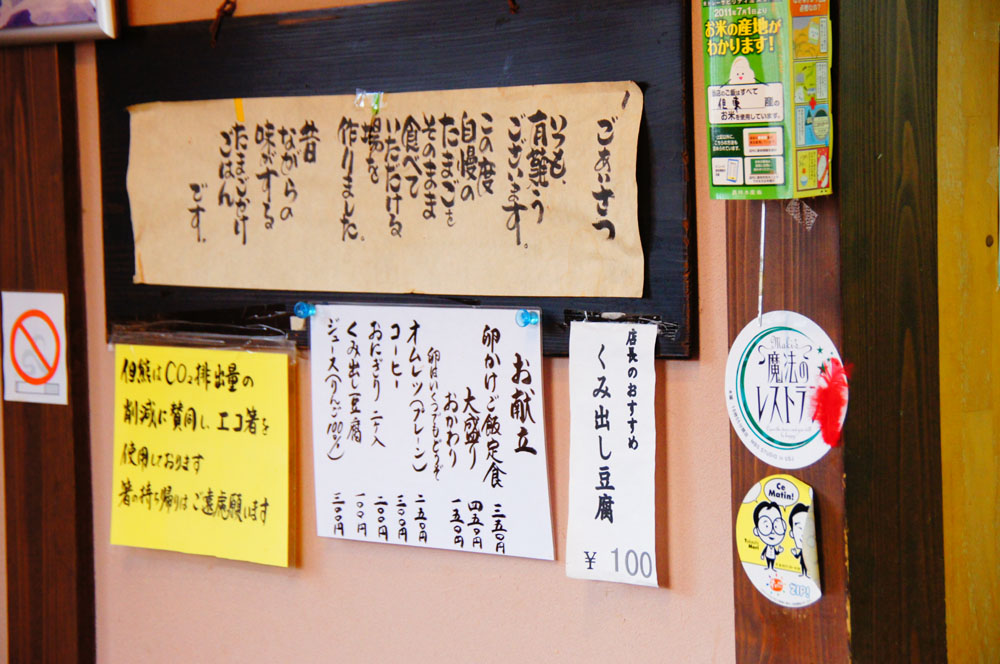 ごあいさつ
いつも、
有難う
ございます。
この度
自慢の
たまごを
そのまま
食べて
いただける
場を
作りました。
昔
ながらの
味がする
たまごかけ
ごはん
です。
但熊はCO2排出量の
削減に賛同し、エコ箸を
使用しております
箸の持ち帰りはご遠慮願います
お献立
卵かけご飯定食 三五〇円
大盛り 四五〇円
おかわり 一五〇円
卵はいくつでもどうぞ
オムレツ(プレーン) 二五〇円
コーヒー 三〇〇円
おにぎり 二ケ入 二〇〇円
くみ出し豆腐 一〇〇円
ジュース(りんご100%) 二〇〇円
店長のおすすめ
くみ出し豆腐
¥100
2011年7月1日より
お米の産地が
わかります!
当店のご飯はすべて
但東 産の
お米を使用しています。
農林水産省
魔法の
レストラ
Ce
Matin!
ZIP!